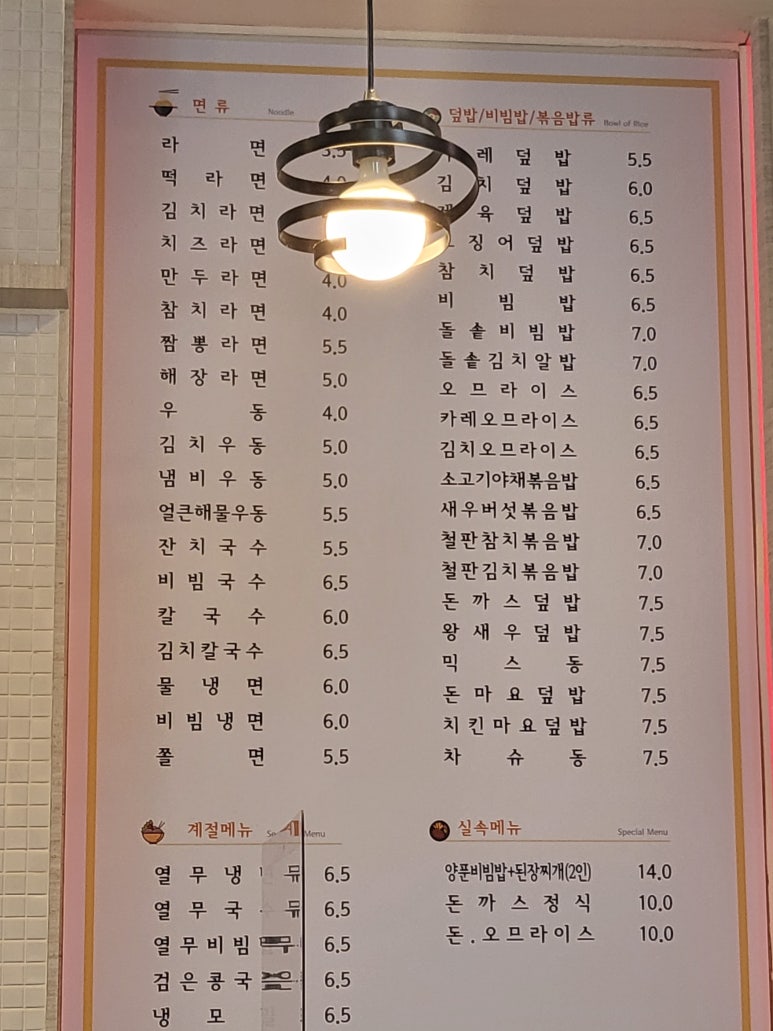 면류 Noodle
라면 3.5
떡라면 4.0
김치라면
치즈라면
만두라면 4.0
참치라면 4.0
짬뽕라면 5.5
해장라면 5.0
우동 4.0
김치우동 5.0
냄비우동 5.0
얼큰해물우동 5.5
잔치국수 5.5
비빔국수 6.5
칼국수 6.0
김치칼국수 6.5
물냉면 6.0
비빔냉면 6.0
쫄면 5.5
덮밥/비빔밥/볶음밥류 Bowl of Rice
레덮밥 5.5
김치덮밥 6.0
육덮밥 6.5
징어덮밥 6.5
참치덮밥 6.5
비빔밥 6.5
돌솥비빔밥 7.0
돌솥김치알밥 7.0
오므라이스 6.5
카레오므라이스 6.5
김치오므라이스 6.5
소고기야채볶음밥 6.5
새우버섯볶음밥 6.5
철판참치볶음밥 7.0
철판김치볶음밥 7.0
돈까스덮밥 7.5
왕새우덮밥 7.5
믹스동 7.5
돈마요덮밥 7.5
치킨마요덮밥 7.5
차슈동 7.5
계절메뉴 Menu
열무냉 6.5
열무국 6.5
열무비빔 6.5
검은콩국 6.5
냉모 6.5
실속메뉴 Special Menu
양푼비빔밥+된장찌개(2인) 14.0
돈까스정식 10.0
돈.오므라이스 10.0